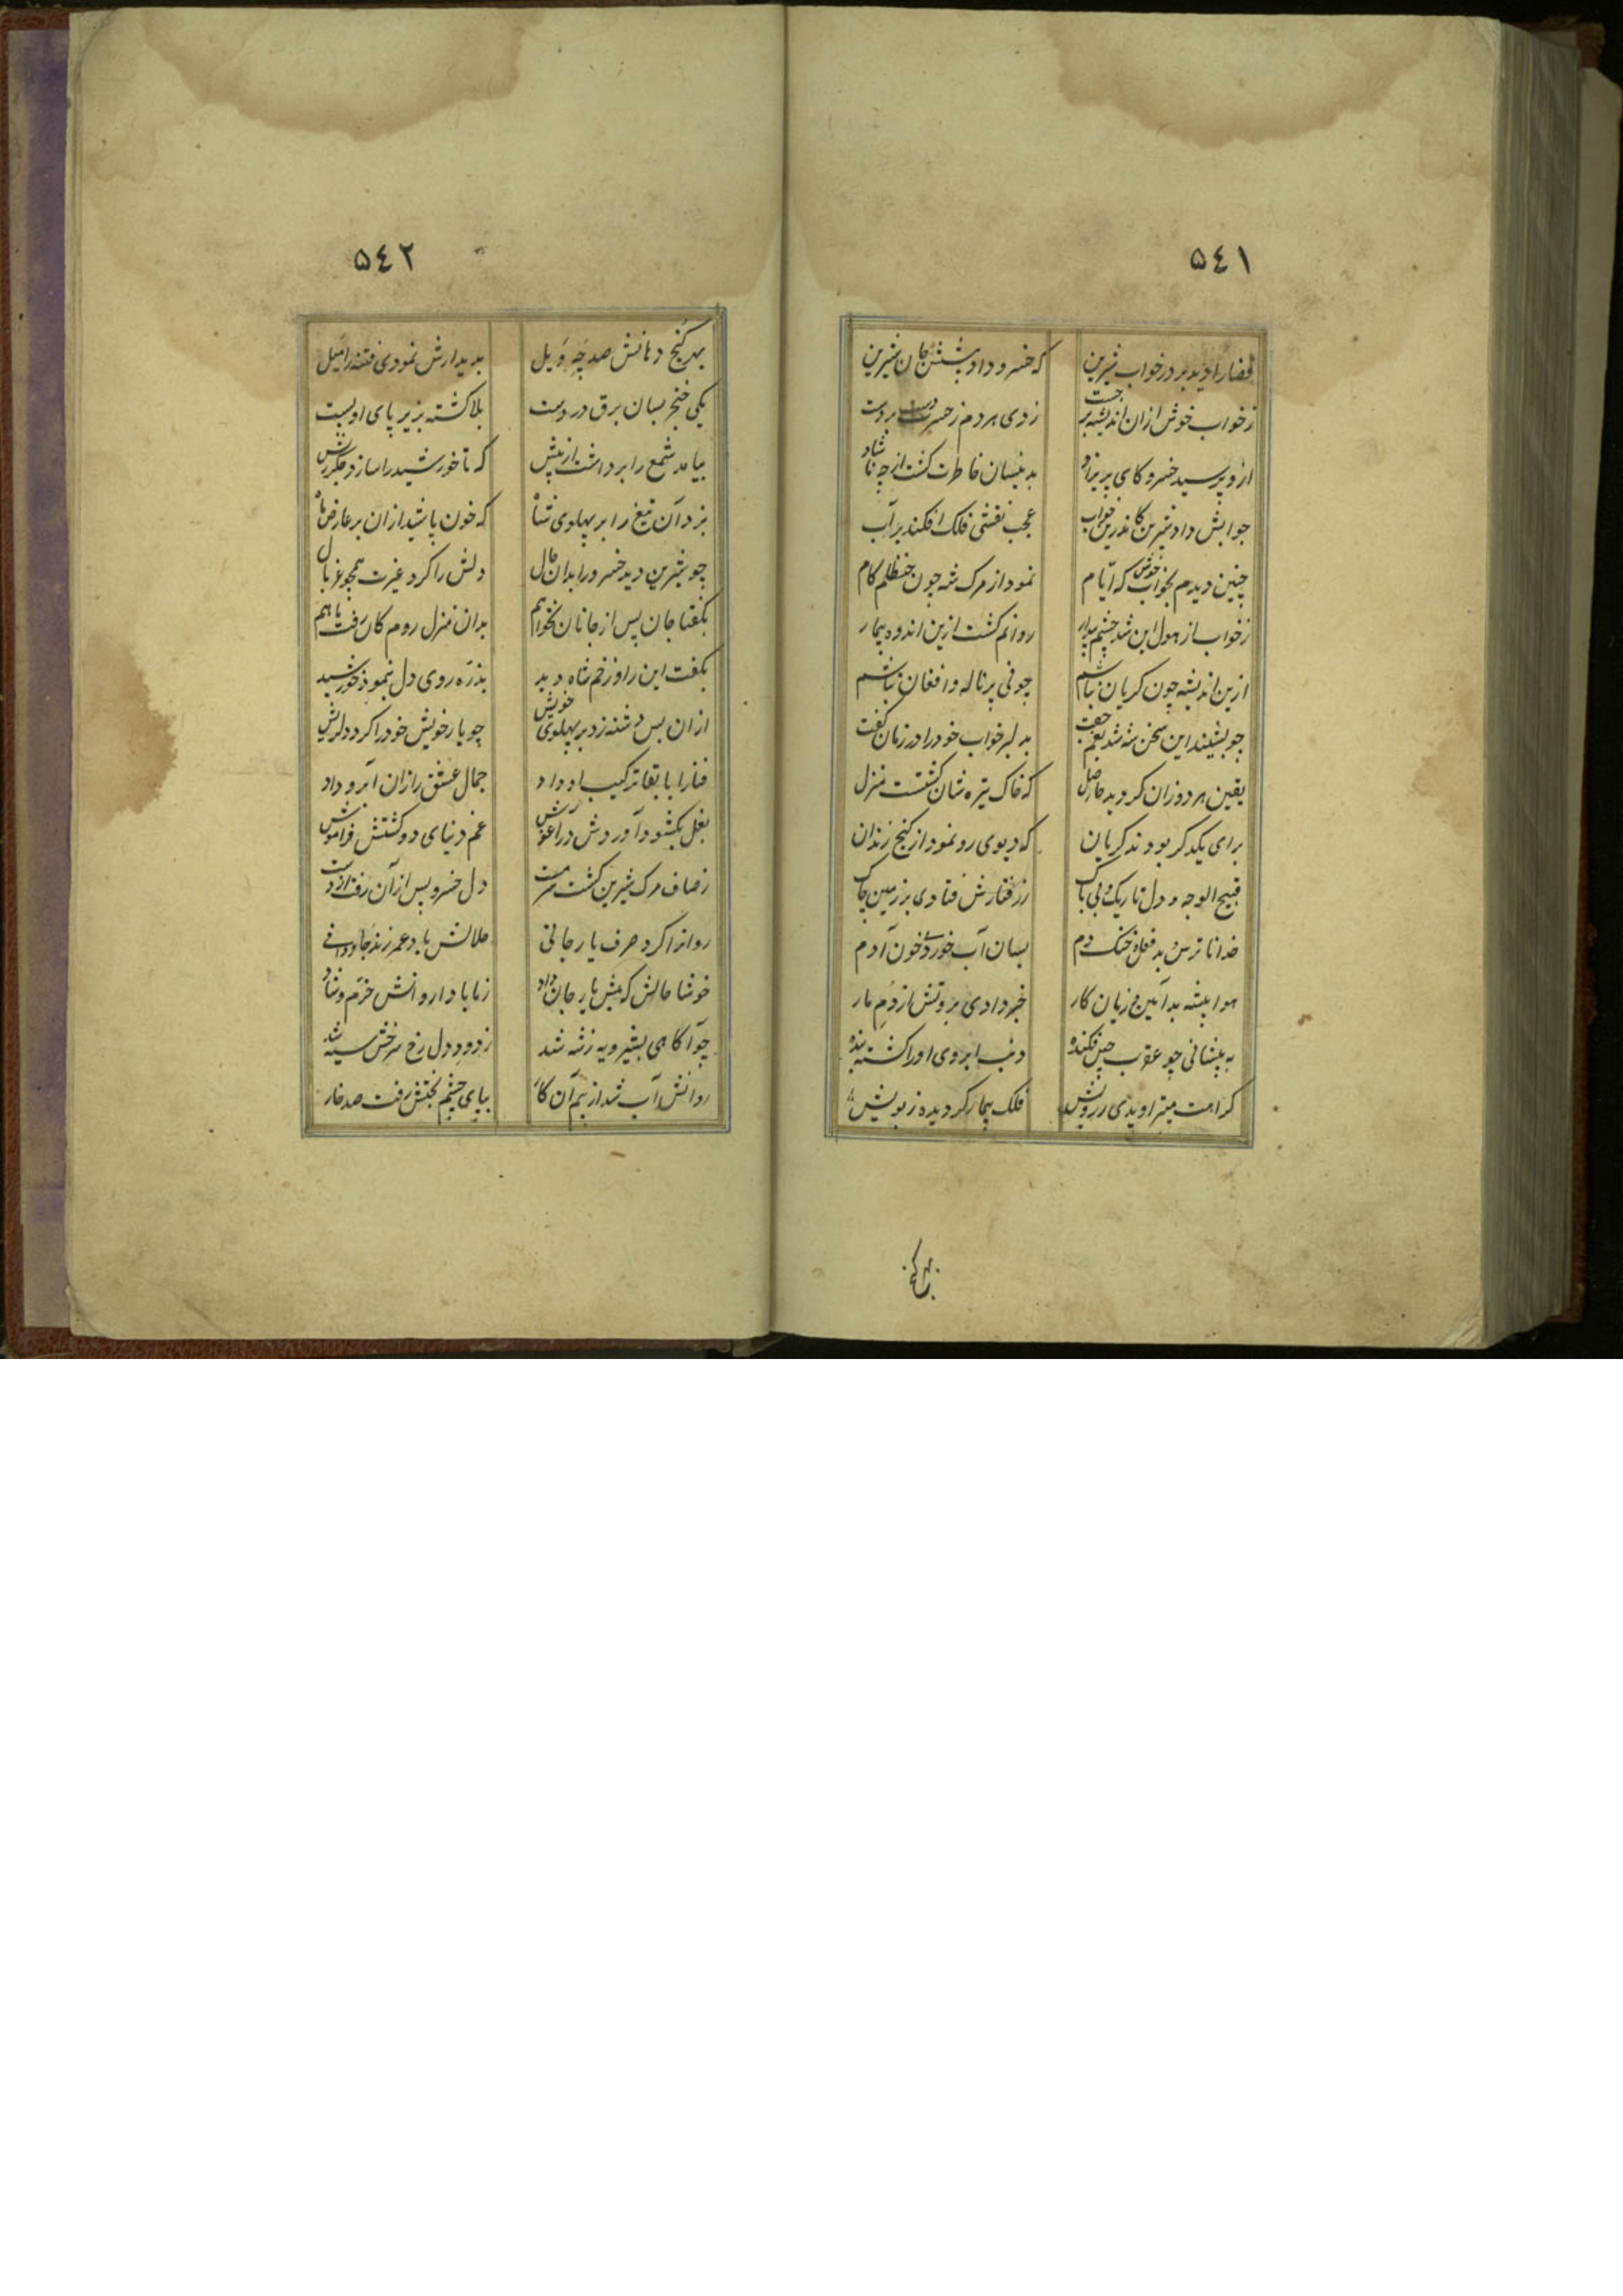 ٥٤١
قضا را دید بر در خواب شیرین که خسرو داد پیشش جان شیرین
ز خواب خوش ازان اندیشه بر جست زدی هر دم ز حسرت دست بر دست
ازو پرسید خسرو کای پریزاد بدینسان خاطرت گشت از چه ناشاد
جوابش داد شیرین کاندرین خواب عجب نقشی فلک افکند بر آب
چنین دیدم بخواب خوش که ایّام نمود از مرک شه چون حنظلم کام
ز خواب از هول این شد چشم بیدار روانم کشت ازین اندوه بیمار
ازین اندیشه چون کریان نباشم چو نی پر ناله و افغان نباشم
چو بشنید این سخن شه شد بغم جفت به دلبر خواب خود را در زمان گفت
یقین هر دو زان کردید حاصل که خاک تیره شان کشتست منزل
برای یکدکر بودند کریان که دیوی رو نمود از کنج زندان
قبیح الوجه و دل تاریک و بی باک ز رفتارش فتادی بر زمین چاک
خدا ناترس و بد فعل و خنک دم بسان آب خوردی خون آدم
هوا پیشه بد آیین و زیان کار خبر دادی بروتش از دُم مار
به پیشانی چو عقرب چین فکنده دنب ابروی او را کشته بنده
کراهت میتراویدی ز رویش فلک بیمار کردیده ز بویش
بهر کنج
٥٤٢
بهر کنج دهانش صد چَه وَیل بدیدارش نمودی فتنه را میل
یکی خنجر بسان برق در دست بلا کشته بزیر پای او پست
بیامد شمع را برداشت از پیش که تا خورشید را سازد جکر ریش
بزد آن تیغ را بر پهلوی شاه که خون پاشید ازان بر عارض ماه
چو شیرین دید خسرو را بدان حال دلش را کرد غیرت همچو غربال
بکفتا جان پس از جانان نخواهم بدان منزل روم کان رفت با هم
بکفت این را و زخم شاه دید بذرّه روی دل بنمود خورشید
ازان پس دشنه زد بر پهلوی خویش چو یار خویش خود را کرد دلریش
فنا را با بقا ترکیب او داد جمال عشق را زان آبرو داد
بغل بکشود آوردش در آغوش غم دنیای دو کشتش فراموش
ز صاف مرک شیرین کشت سرمست دل خسرو پس از آن رفت از دست
روانرا کرد صرف یار جانی حلالش باد عمر زندجاودانی
خوشا حالش که پیش یار جان داد ز ما بادا روانش خرّم و شاد
چو آکاهی بشیرویه ز شه شد ز دود دل رخ سرخش سیه شد
روانش آب شد از بیم آن کار بپای چشم بختش رفت صد خار